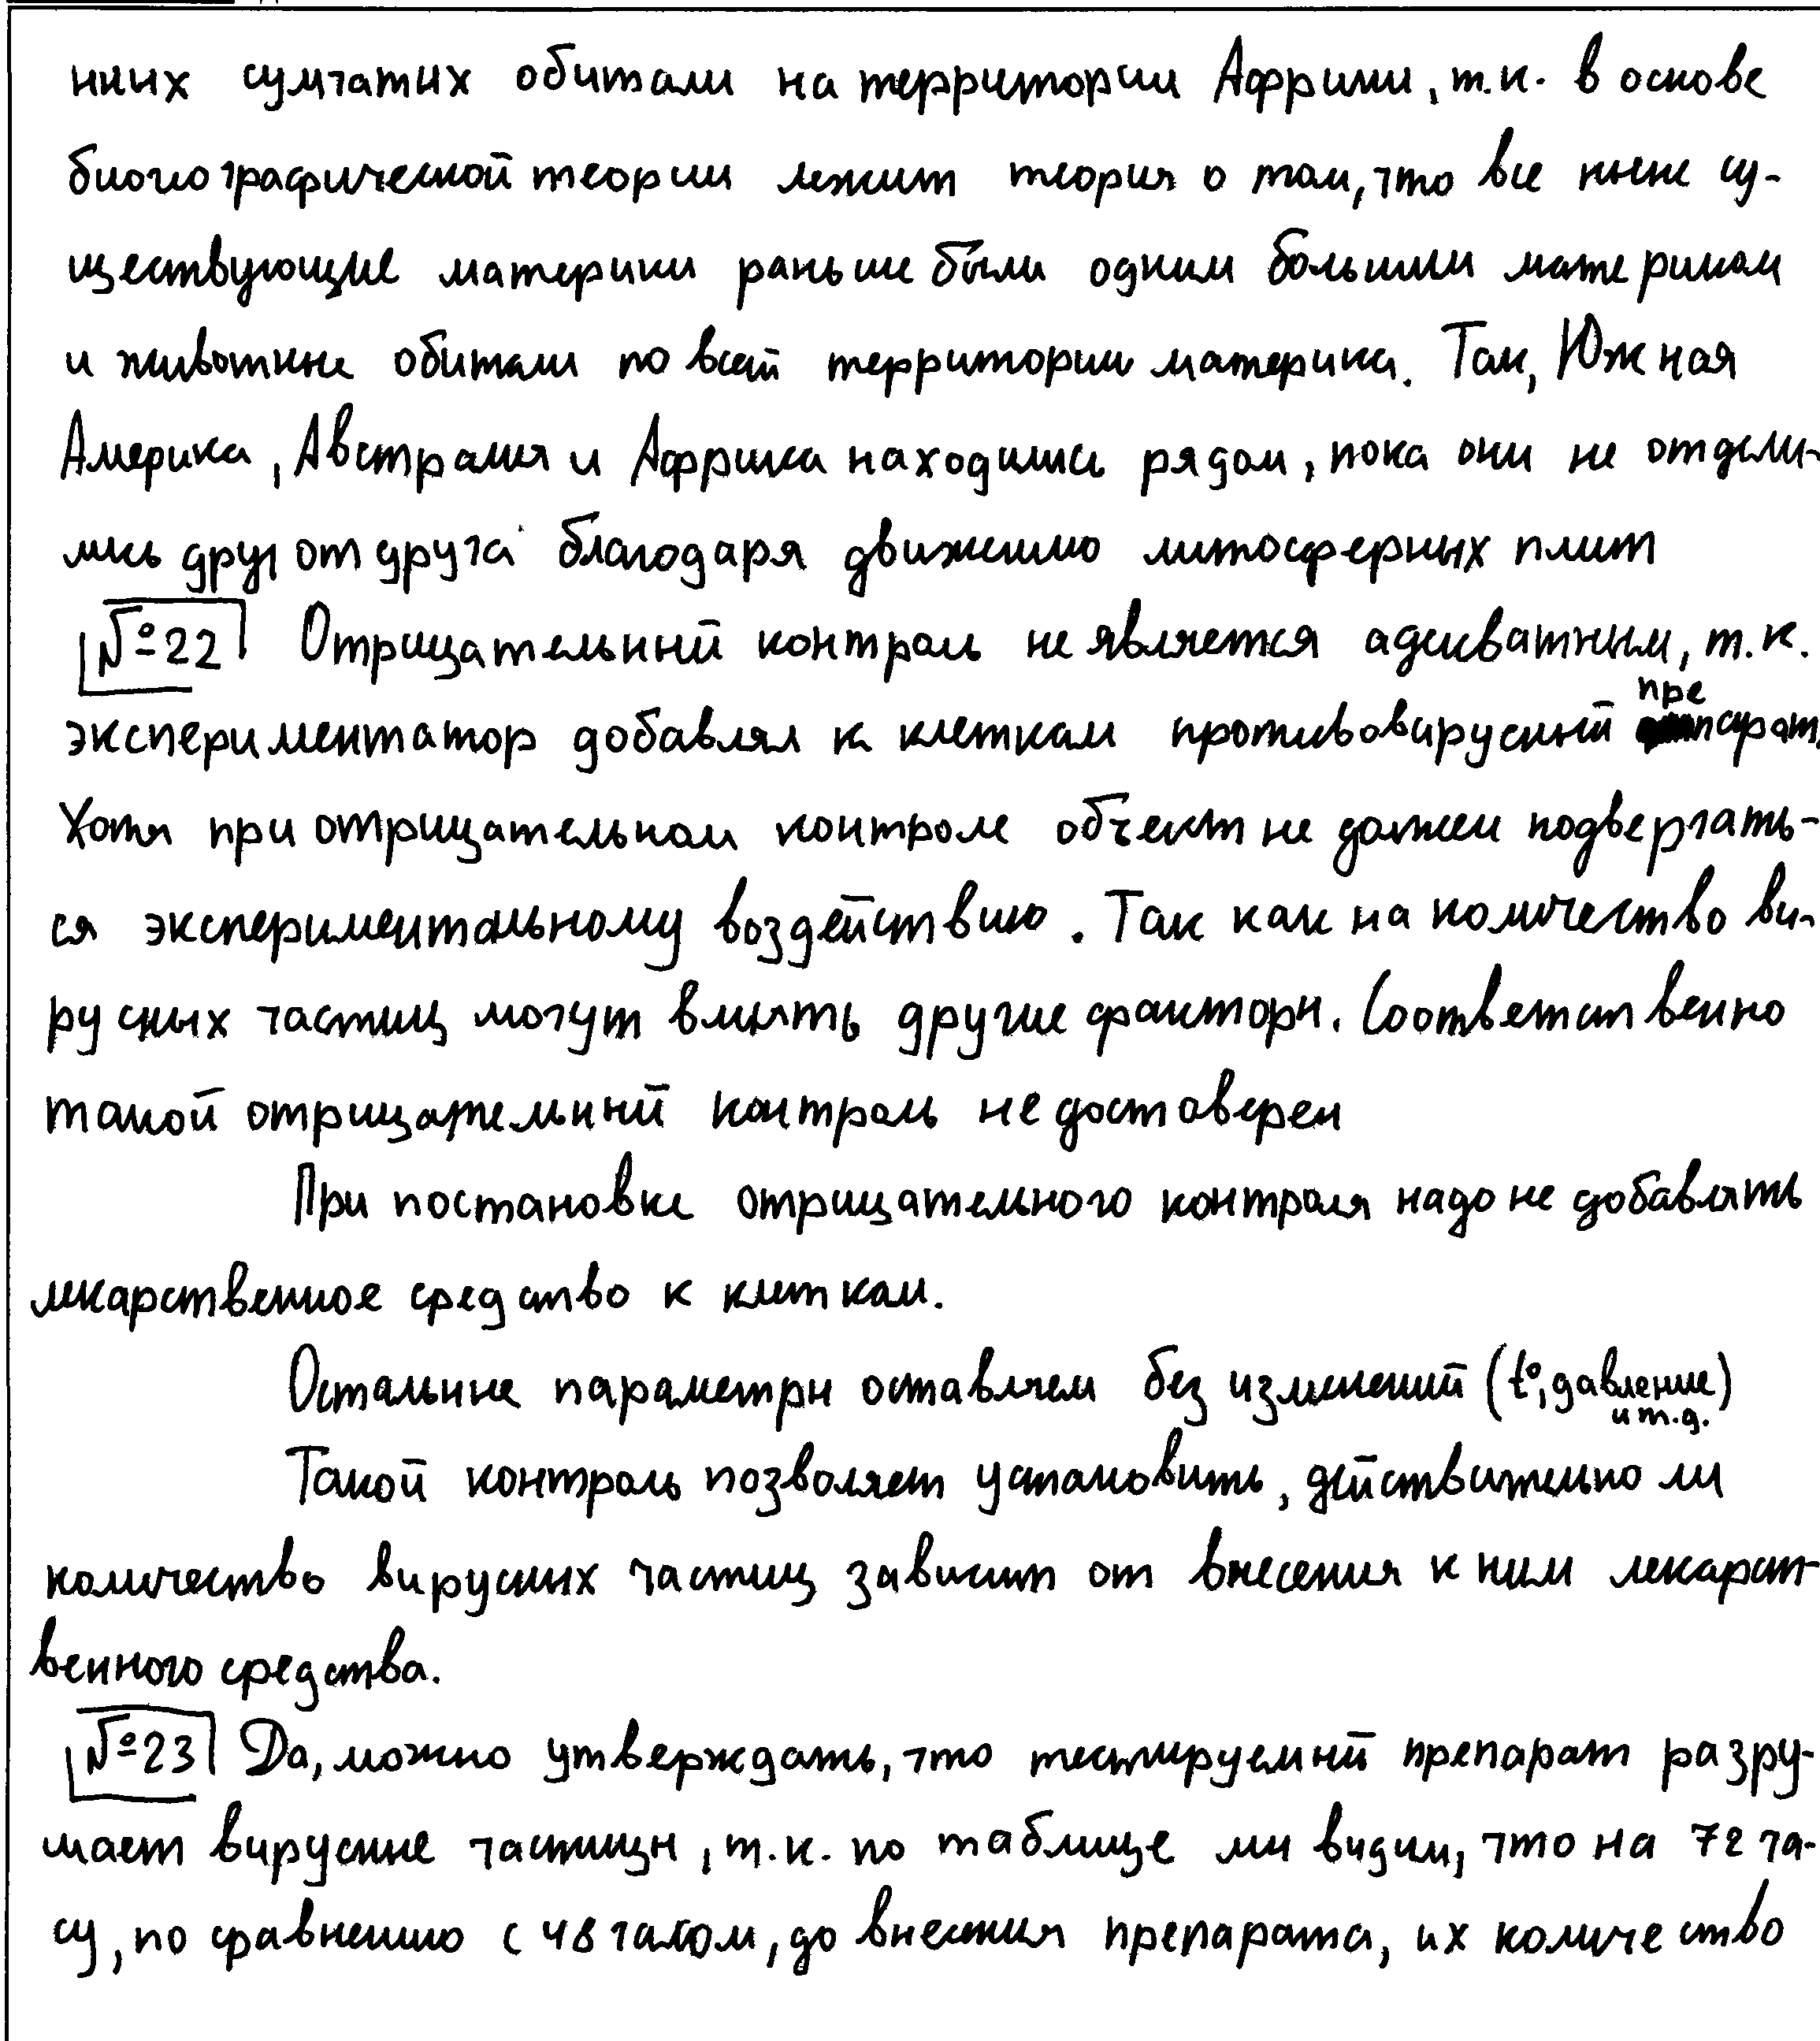 нних сумчатых обитали на территории Африки, т.к. в основе
биогеографической теории лежит теория о том, что все ныне су-
ществующие материки раньше были одним большим материком
и животные обитали по всей территории материка. Так, Южная
Америка, Австралия и Африка находились рядом, пока они не отдели-
лись друг от друга благодаря движению литосферных плит
№22 Отрицательный контроль не является адекватным, т.к.
экспериментатор добавлял к клеткам противовирусный препарат,
Хотя при отрицательном контроле объект не должен подвергать-
ся экспериментальному воздействию. Так как на количество ви-
русных частиц могут влиять другие факторы. Соответственно
такой отрицательный контроль не достоверен
При постановке отрицательного контроля надо не добавлять
лекарственное средство к клеткам.
Остальные параметры оставляем без изменений (t°, давление и т.д.)
Такой контроль позволяет установить, действительно ли
количество вирусных частиц зависит от внесения к ним лекарст
венного средства.
№23 Да, можно утверждать, что тестируемый препарат разру-
шает вирусные частицы, т.к. по таблице мы видим, что на 72 ча-
су, по сравнению с 48 часом, до внесения препарата, их количество